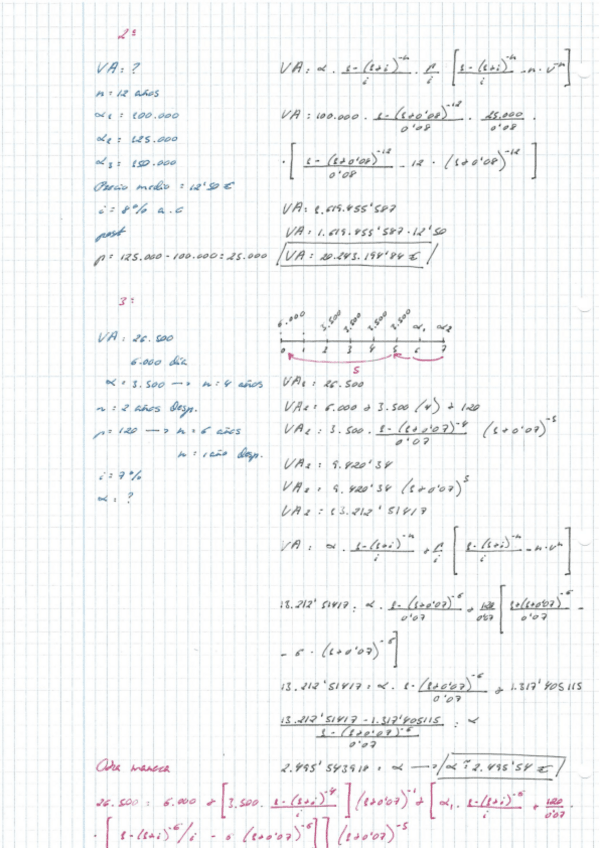 2:
VA: ?
n = 12 años
α1 = 100.000
α2 = 125.000
α3 = 150.000
Precio medio = 12'50 €
i = 8% a.c
post
p = 125.000 - 100.000 = 25.000
VA = α · 1-(1+i)^-n / i · p/i [1-(1+i)^-n / i - n · v^n]
VA = 100.000 · 1-(1+0'08)^-12 / 0'08 · 25.000 / 0'08 ·
· [1-(1+0'08)^-12 / 0'08 - 12 · (1+0'08)^-12]
VA = 1.619.455'587
VA = 1.619.455'587 · 12'50
VA = 20.243.194'84 €
3:
VA = 26.500
6.000 día
α = 3.500 → n = 4 años
n = 2 años Desp.
p = 120 → n = 6 años
n = 1 año Desp.
i = 7%
α = ?
6.000 3.500 3.500 3.500 3.500 α1 α2
0 1 2 3 4 5 6 7
5
VA1 = 26.500
VA2 = 6.000 + 3.500 (4) + 120
VA2 = 3.500 · 1-(1+0'07)^-4 / 0'07 (1+0'07)^-5
VA2 = 9.420'34
VA2 = 9.420'34 (1+0'07)^5
VA2 = 13.212'51417
VA = α · 1-(1+i)^-n / i + p/i [1-(1+i)^-n / i - n · v^n]
13.212'51417 = α · 1-(1+0'07)^-6 / 0'07 + 120/0'07 [1+(1+0'07)^-6 / 0'07 -
- 6 · (1+0'07)^-6]
13.212'51417 = α · 1-(1+0'07)^-6 / 0'07 + 1.317'405115
13.212'51417 - 1.317'405115 / 1-(1+0'07)^-6 / 0'07 = α
2.495'543918 = α → α = 2.495'54 €
Otra manera
26.500 = 6.000 + [3.500 · 1-(1+i)^-4 / i] (1+0'07)^-1 + [α1 · 1-(1+i)^-6 / i + 120/0'07 ·
· [1-(1+i)^-6 / i - 6 (1+0'07)^-6]] (1+0'07)^-5